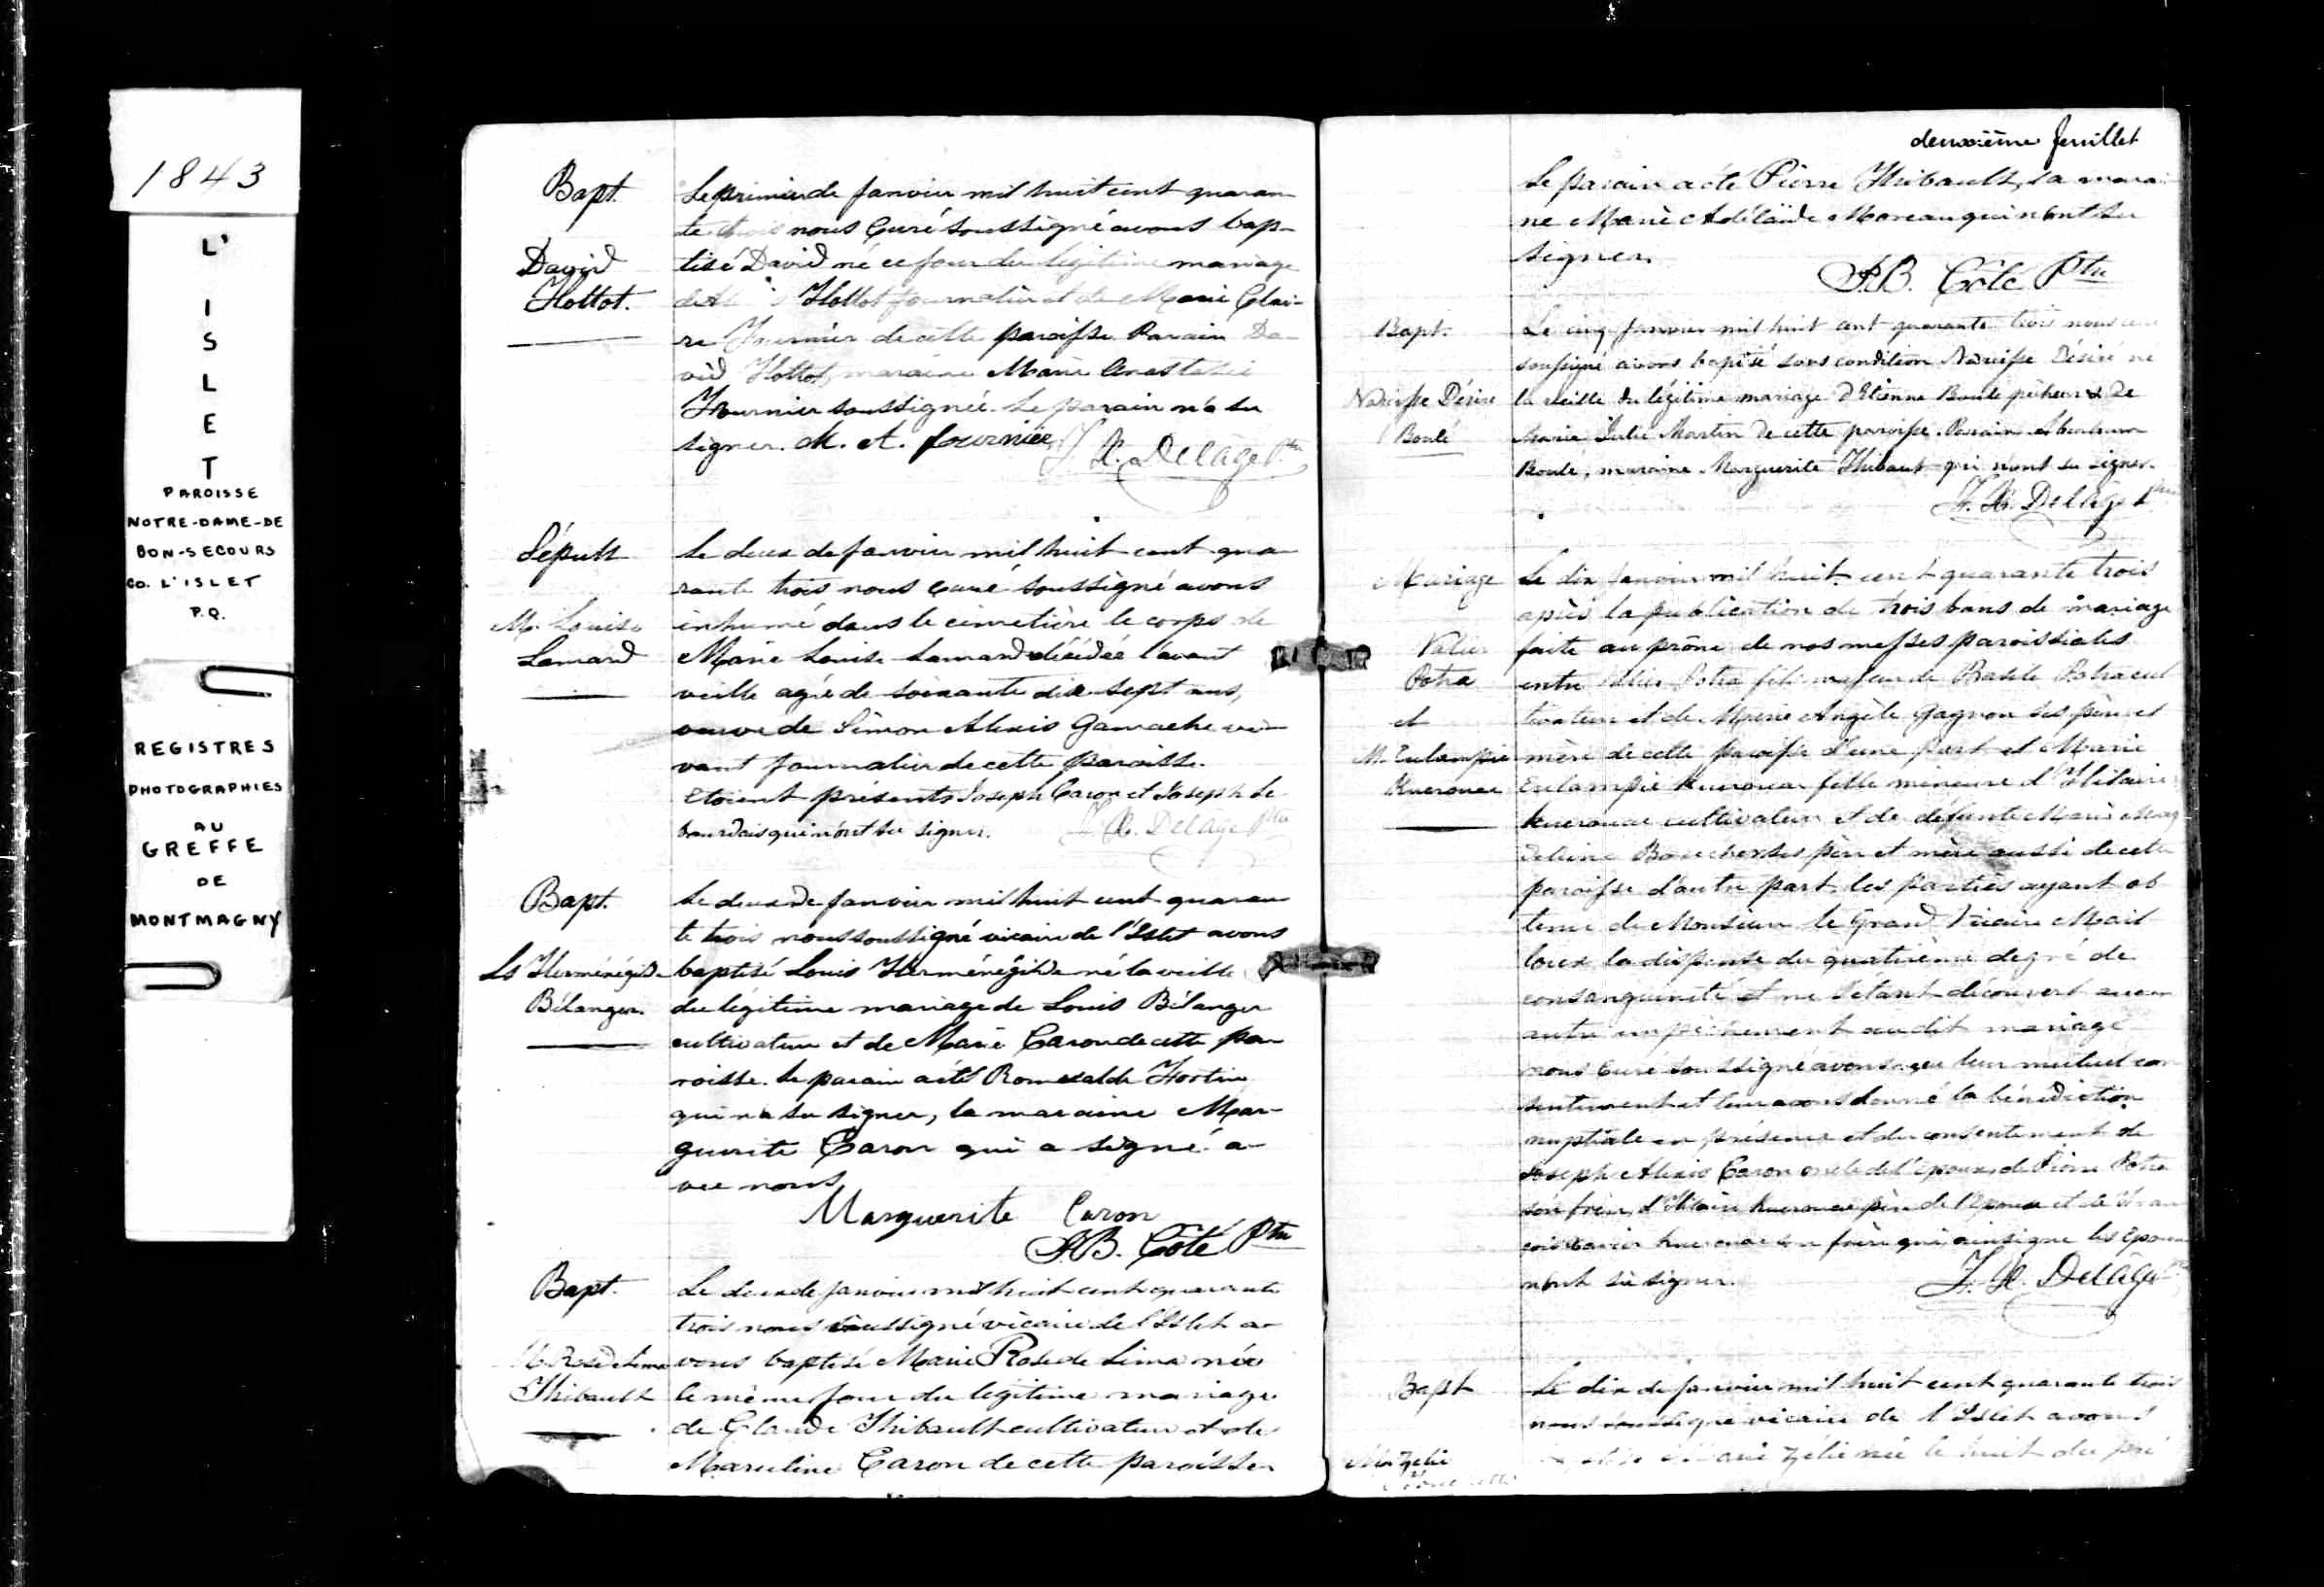 1843
L'
I
S
L
E
T
PAROISSE
NOTRE-DAME-DE
BON-SECOURS
CO. L'ISLET
P.Q.
REGISTRES
PHOTOGRAPHIES
AU
GREFFE
DE
MONTMAGNY
Bapt.
David
Hottot.
Le premier de janvier mil huit cent quaran
te trois nous Curé soussigné avons bap-
tisé David né ce jour du légitime mariage
Hottot journalier et de Marie Clai-
re Fournier de cette paroisse Parain Da-
vid Hottot, maraine Marie Anastasie
Fournier soussignée. Le parain n'a su
signer. M. A. fournier
Délâge Ptre
Sépult
M. Louise
Lemard
Le deux de janvier mil huit cent qua-
rante trois nous Curé soussigné avons
inhumé dans le cimetière le corps de
Marie Louise Lamard décédée l'avant
veille agée de soixante dix sept ans,
veuve de Simon Alexis Gamache vi-
vant journalier de cette paroisse.
Etoient présents Joseph Caron et Joseph Le
bourdais qui n'ont su signer. Délâge Ptre
Bapt.
Ls Herménégilde
Bélanger.
Le deux de janvier mil huit cent quaran
te trois nous soussigné vicaire de l'Islet avons
baptisé Louis Herménégilde né la veille
du légitime mariage de Louis Bélanger
cultivateur et de Marie Caron de cette pa-
roisse. Le parain a été Romualde Fortin
qui n'a su signer, la maraine Mar-
guerite Caron qui a signé a-
vec nous
Marguerite Caron
Côté Ptre
Bapt.
M. Rose de Lima
Thibault
Le deux de janvier mil huit cent quarante
trois nous soussigné vicaire de l'Islet a-
vons baptisé Marie Rose de Lima née
le même jour du légitime mariage
de Glaude Thibault cultivateur et de
Marceline Caron de cette paroisse
deuxième feuillet
Le parain a été Pierre Thibault, la marai
ne Marie Adélaïde Moreau qui n'ont su
signer.
Côté Ptre
Bapt.
Narcisse Désiré
Boulé
Le cinq janvier mil huit cent quarante trois nous curé
soussigné avons baptisé sous condition Narcisse Désiré né
la veille du légitime mariage d'Etienne Boulé pêcheur & de
Marie Julie Martin de cette paroisse. Parain Abraham
Boulé, maraine Marguerite Thibaut qui n'ont su signer.
Délâge Ptre
Mariage
Valier
Potra
et
M. Eulampie
Kuerouac
Le dix janvier mil huit cent quarante trois
après la publication de trois bans de mariage
faite au prône de nos messes paroissiales
entre Valier Potra fils majeur de Basile Potra cul
tivateur et de Marie Angèle Gagnon ses père et
mère de cette paroisse d'une part et Marie
Eulampie Kuerouac fille mineure d'Hilaire
Kuerouac cultivateur et de défunte Marie Mag
deleine Boucher ses père et mère aussi de cette
paroisse d'autre part. les parties ayant ob
tenu de Monsieur le Grand Vicaire Mail
loux la dispense du quatrième degré de
consanguinité et ne s'étant découvert aucun
autre empêchement audit mariage
nous Curé soussigné avons reçu leur mutuel con
sentement et leur avons donné la bénédiction
nuptiale en présence et du consentement de
Joseph Alexis Caron oncle de l'époux, de Pierre Potra
son frère, d'Hilaire Kuerouac père de l'épouse et de Fran
çois Xavier Kuerouac son frère qui a signé les époux
n'ont su signer.
Délâge Ptre
Bapt
M. Zélie
Le dix de janvier mil huit cent quarante trois
nous soussigné vicaire de l'Islet avons
Marie Zélie née le huit du pré